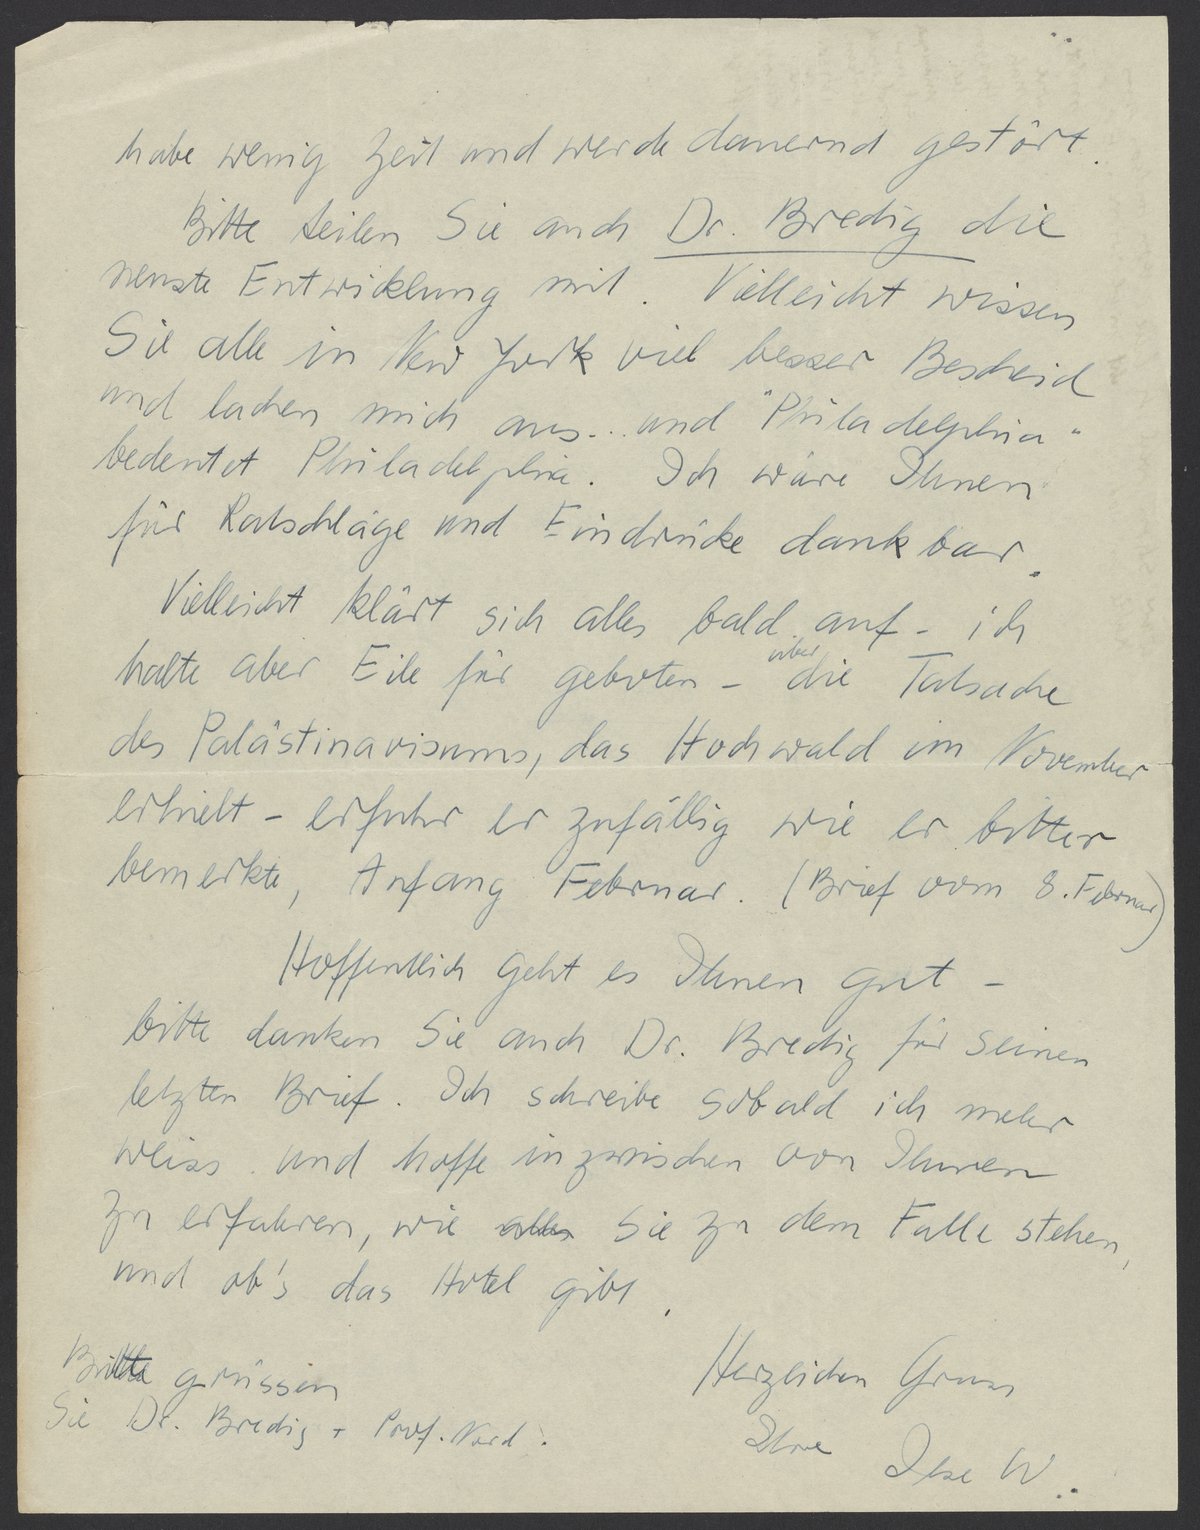 habe wenig Zeit und werde dauernd gestört.
Bitte teilen Sie auch Dr. Bredig die
neuste Entwicklung mit. Vielleicht wissen
Sie alle in New York viel besser Bescheid
und lachen mich aus... und "Philadelphia"
bedeutet Philadelphia. Ich wäre Ihnen
für Ratschläge und Eindrücke dankbar.
Vielleicht klärt sich alles bald auf - ich
halte aber Eile für geboten - über die Tatsache
des Palästinavisums, das Hochwald im November
erhielt - erfuhr er zufällig wie er bitter
bemerkte, Anfang Februar. (Brief vom 8. Februar)
Hoffentlich geht es Ihnen gut -
bitte danken Sie auch Dr. Bredig für seinen
letzten Brief. Ich schreibe sobald ich mehr
weiss und hoffe inzwischen von Ihnen
zu erfahren, wie alles Sie zu dem Falle stehen,
und ob's das Hotel gibt.
Herzlichen Gruss
Ihre Ilse W.
Bitte grüssen
Sie Dr. Bredig + Prof. Nord.